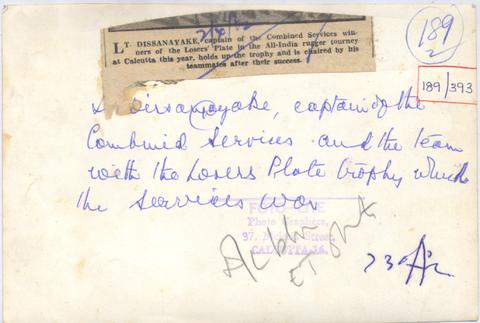 189
2
189/393
LT. DISSANAYAKE, captain of the Combined Services win-
ners of the Losers' Plate in the All-India rugger tourney
at Calcutta this year, holds up the trophy and is chaired by his
teammates after their success.
Dissanayake, captain of the
Combined Services and the team
with the Losers Plate trophy which
the Services won
Street,
CALCUTTA-16.